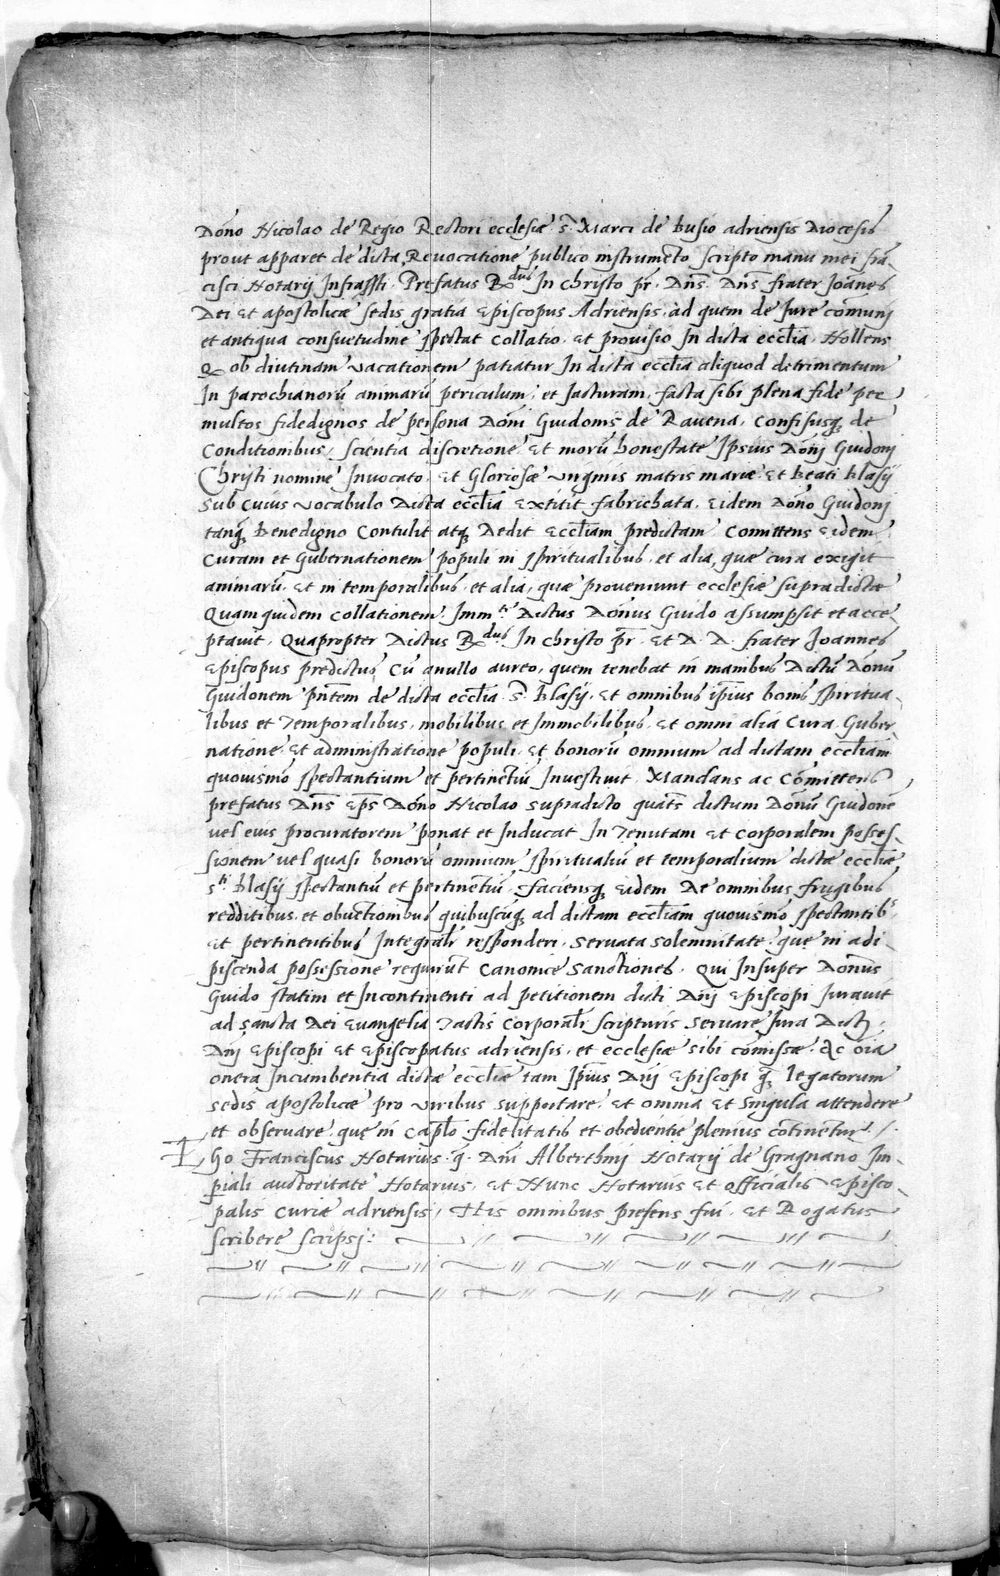 Dóno Nicolao de Regio Rectori ecclesiæ s̃ Marci de busio adriensis Diocesis
prout apparet de dicta, Revocatione publico instrumẽto scripto manu mei frã-
cisci Notarij Infrassti. Prefatus R^dus In christo pr̃. Dñs. Dñs frater Joãnes
Dei Et apostolicæ sedis gratia Episcopus Adriensis. ad quem de Jure comunj
et antiqua consuetudine spectat collatio. et provisio In dicta ecclĩa. Nollens
Q ob diutinam vacationem patiatur In dicta ecclĩa aliquod detrimentum
In parochianorũ animarũ periculum, et Jacturam. facta sibi plena fide per
multos fidedignos de persona Dóni Guidonis de Ravena. Confisusq de
Conditionibus, scientia discretione Et morũ honestate Ipsius Dónj Guidonj
Christi nomine Invocato. Et Gloriosæ virginis matris mariæ Et Beati blasij
Sub Cuius vocabulo Dicta ecclĩa Extitit fabrichata. Eidem Dóno Guidonj
tanq̃ Benedigno Contulit atq Dedit Ecclĩam predictam Comittens Eidem
Curam et Gubernationem populi in spiritualibus. et alia, quæ cura exigit
animarũ. Et in temporalibus, et alia, quæ proveniunt ecclesiæ supradictæ
Quam quidem collationem. Imm^te Dictus Dónus Guido assumpsit et acce-
ptavit. Quapropter Dictus R^dus In christo pr̃. Et D. D. frater Joannes
Episcopus predictus Cũ anullo aureo, quem tenebat in manibus Dictũ Dónũ
Guidonem pñtem de dicta ecclĩa s̃ blasij. Et omnibus ip̃ius bonis spiritua-
libus et Temporalibus, mobilibus et Immobilibus, Et omni alia Cura Guber-
natione Et administratione populi. Et bonorũ omnium ad dictam ecclĩam
quovismó spectantium et pertinẽtiũ Investivit. Mandans ac Cómittens
prefatus Dñs Ep̃s Dóno Nicolao supradicto quatẽs dictum Dónũ Guidonẽ
vel eius procuratorem ponat et Inducat In Tenutam Et corporalem posses-
sionem vel quasi bonorũ omnium spiritualiũ et temporalium dictæ ecclĩæ
s^ti blasij spectantiũ et pertinẽtiũ. Faciensq Eidem De omnibus frugibus
redditibus, et obventionibus quibuscũq ad dictam ecclĩam quovismó spectantib^s
Et pertinentibus Integralr̃ responderi. Servata solemnitate. que in adi-
piscenda possessione requirũt Canonice Sanctiones. Qui Insuper Dónus
Guido statim et Incontinenti ad petitionem dicti Dñj Episcopi Juravit
ad Sancta Dei Evangelia Tactis Corporalr̃ scripturis Servare Jura Dictj
Dñj Episcopi Et Episcopatus adriensis. et ecclesiæ sibi cómissæ. Ac oĩa
onera Incumbentia dictæ ecclĩæ tam Ip̃ius Dñj Episcopi q̃ legatorum
sedis apostolicæ pro viribus supportare. Et omnia Et Singula attendere
et observare. que in Cap̃lo fidelitatis et obedientie plenius cõtinentur./.
Ego Franciscus Notarius. q̃. Dñi Alberthinj Notarij de Gragnano Im-
p̱iali auctoritate Notarius, Et Nunc Notarius Et officialis Episco-
palis Curiæ adriensis, His omnibus presens fui. Et Rogatus
scribere scripsj: